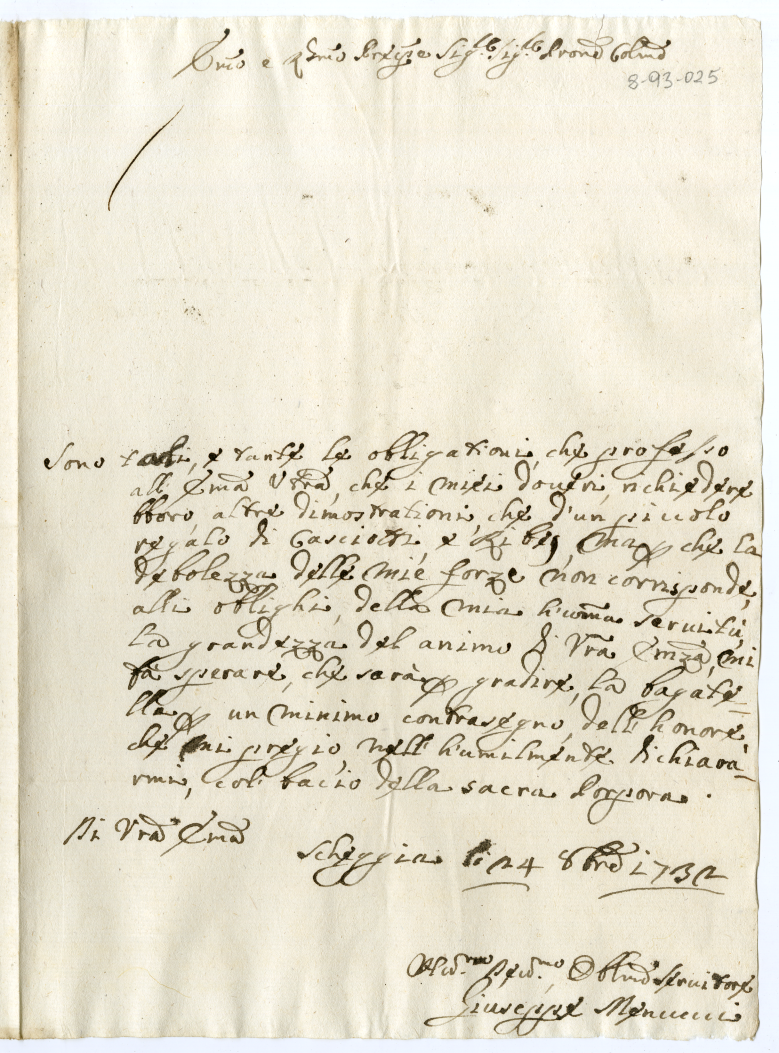 Emo e Rmo Prèpe Sig.re Sig.re Prone Colmo
8-93-025
Sono tali, e tante le obligationi, che professo
all Emã Vrã, che i miei doveri, richiedere
bboro altre dimostrationi, che d'un piccolo
regalo di Casciotti, e Ribes, ma p che la
debolezza delle mie forze non corrisponde,
alli oblighi, della mia h'uoma servitù,
la grandezza del animo di Vrã Emza, mi
fà sperare, che sarà p gradire, la bagate-
lla p un minimo contrasegno, dell'honore,
che mi pregio, nell'humilmente dichiara-
rmi, col bacio della sacra Porpora.
Di Vrã Emã
Scheggia li 24 8bre 1732
Devmo Obblmo Servitore
Giuseppe Menucci